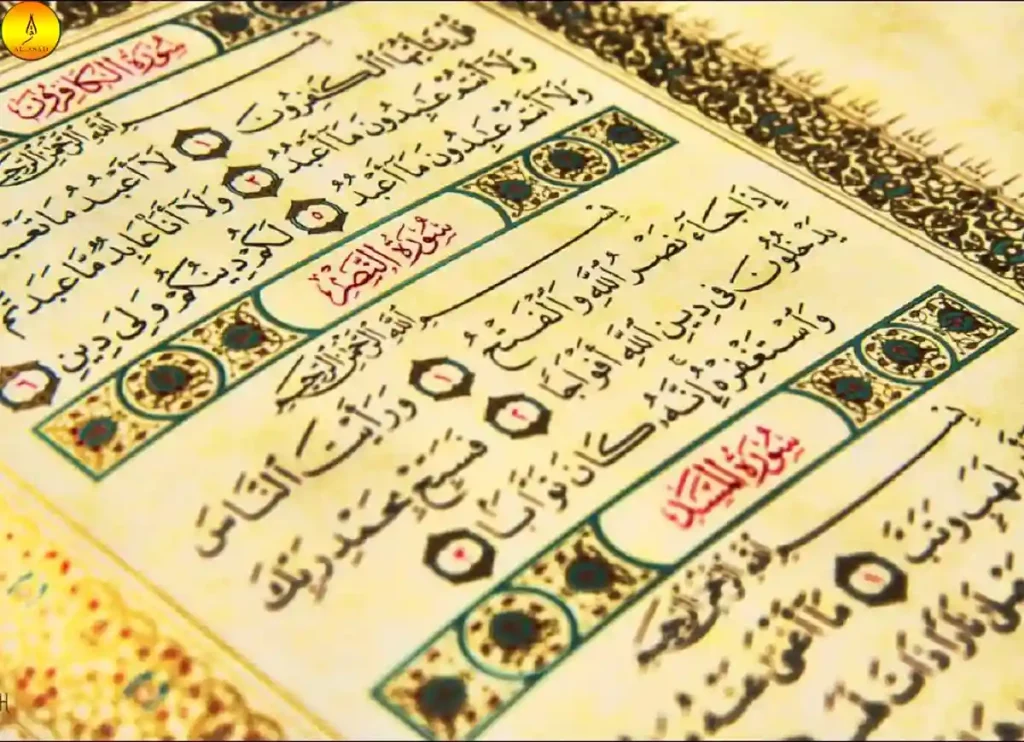 سُورَةُ الكَافِرُون
بِسْمِ ٱللَّهِ ٱلرَّحْمَٰنِ ٱلرَّحِيمِ
قُلْ يَٰٓأَيُّهَا ٱلْكَٰفِرُونَ ١ لَآ أَعْبُدُ مَا
وَلَآ أَنتُمْ عَٰبِدُونَ مَآ أَعْبُدُ ٣ وَلَآ أَنَا۠ عَابِدٌ مَّا عَبَدتُّمْ
وَلَآ أَنتُمْ عَٰبِدُونَ مَآ أَعْبُدُ ٥ لَكُمْ دِينُكُمْ وَلِىَ دِينِ ٦
سُورَةُ النَّصْرِ
بِسْمِ ٱللَّهِ ٱلرَّحْمَٰنِ ٱلرَّحِيمِ
إِذَا جَآءَ نَصْرُ ٱللَّهِ وَٱلْفَتْحُ ١ وَرَأَيْتَ ٱلنَّاسَ
يَدْخُلُونَ فِى دِينِ ٱللَّهِ أَفْوَاجًا ٢ فَسَبِّحْ بِحَمْدِ رَبِّكَ
وَٱسْتَغْفِرْهُ إِنَّهُۥ كَانَ تَوَّابًۢا ٣
سُورَةُ المَسَد
بِسْمِ ٱللَّهِ ٱلرَّحْمَٰنِ ٱلرَّحِيمِ
لَهَبٍ وَتَبَّ ١ مَآ أَغْنَىٰ عَنْهُ
نَارًا ذَاتَ لَهَبٍ